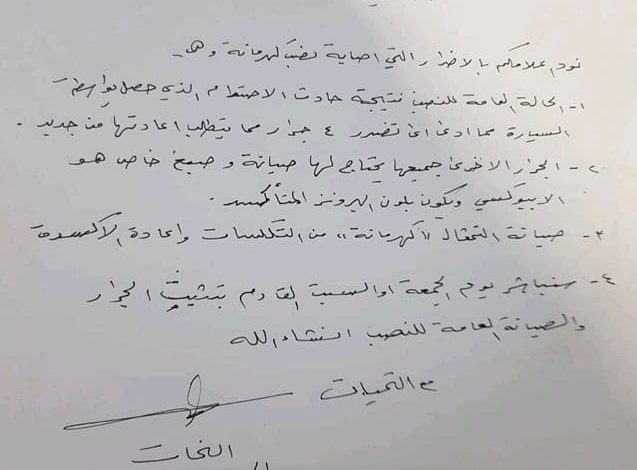 نود اعلامكم بالاضرار التي اصابة نصب كهرمانة وهي
١- الحالة العامة للنصب نتيجة حادث الاصطدام الذي حصل بواسطة
السيارة مما ادى الى تضرر ٤ جرار مما يتطلب اعادتها من جديد .
٢- الجرار الاخرى جميعها يحتاج لها صيانة و صبغ خاص هو
الايبوكسي ويكون بلون البرونز المتأكسد .
٣- صيانة التمثال "كهرمانة" من التكلسات واعادة الاكسدة
٤- سنباشر يوم الجمعة او السبت القادم بتثبيت الجرار
والصيانة العامة للنصب انشاء الله
مع التحيات
النحات